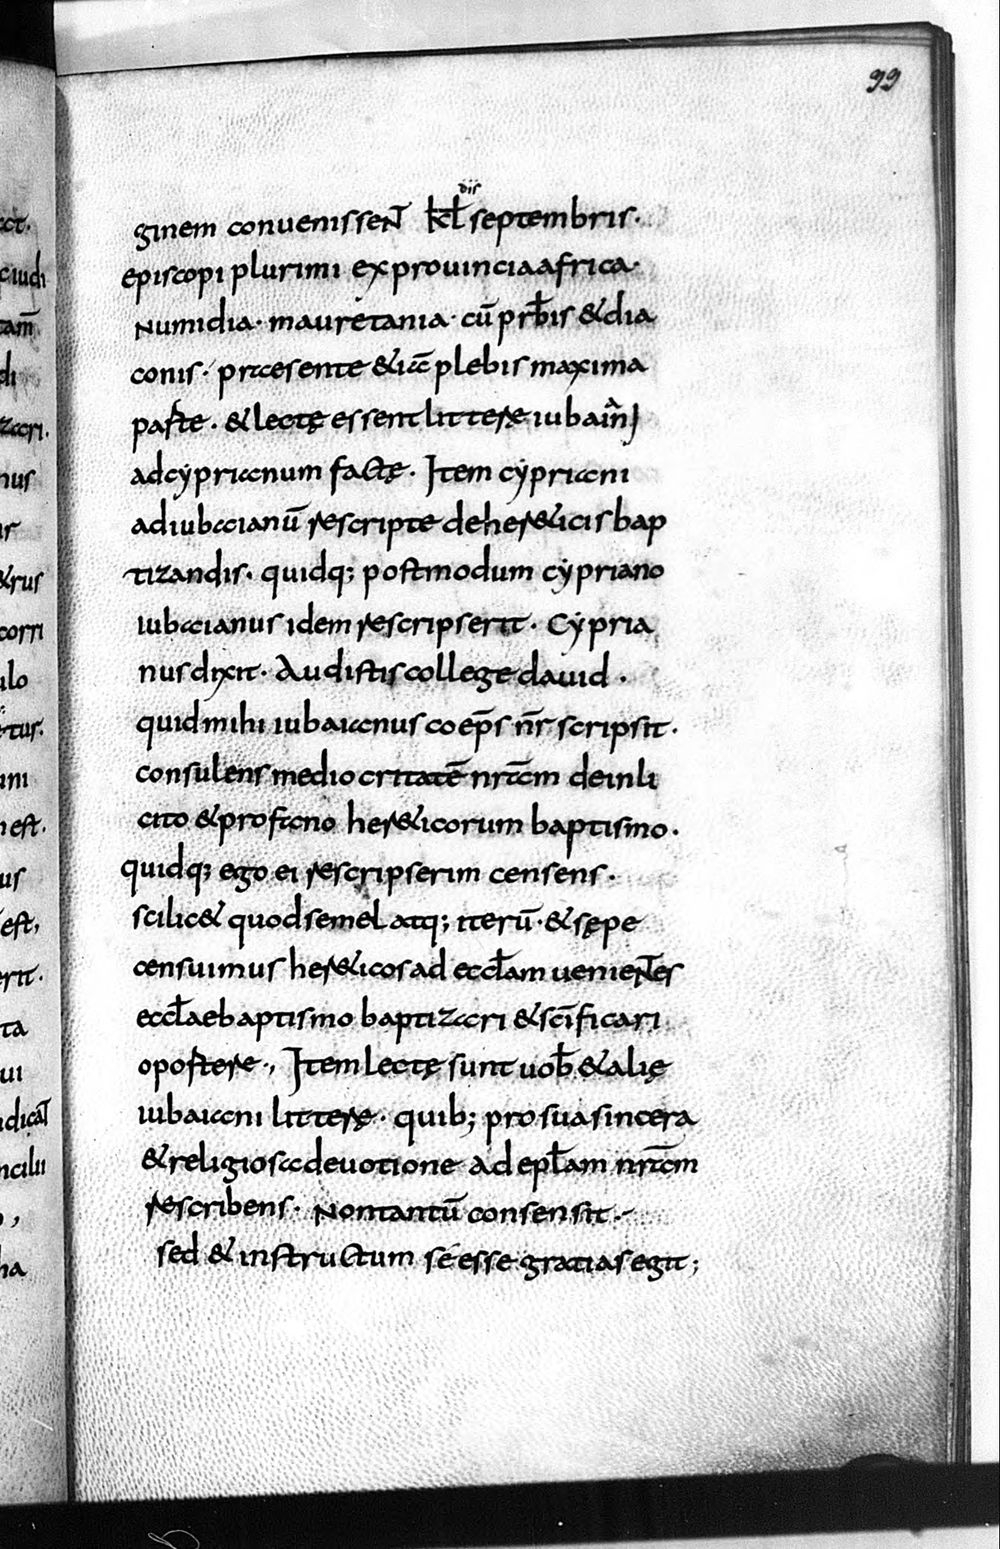 99
dis
ginem conuenissent̄ kƚ septembris·
episcopi plurimi ex prouincia africa·
Numidia· mauretania· cū prb̄is & dia
conis· praesente & iā plebis maxima
parte· & lectę essent litterę iubaiani
ad cẏprianum factę· Item cẏpriani
ad iubaianū rescripte de her&icis bap
tizandis· quidq; postmodum cẏpriano
iubaianus idem rescripserit· Cẏpria
nus dixit· Audistis college dauid·
quid mihi iubaianus coep̄s nr̄ scripsit·
consulens mediocritatē nrām de inli
cito & profano her&icorum baptismo·
quidq; ego ei rescripserim censens·
scilic& quod semel atq; iterū· & sępe
censuimus her&icos ad eccƚam uenientes
eccƚae baptismo baptizari & scīficari
oportere·, Item lectę sunt uob̄ & alię
iubaiani litterę· quib; pro sua sincera
& religiosa deuotione ad epƚam nrām
rescribens· Non tantū consensit·
sed & instructum se esse gratias egit;